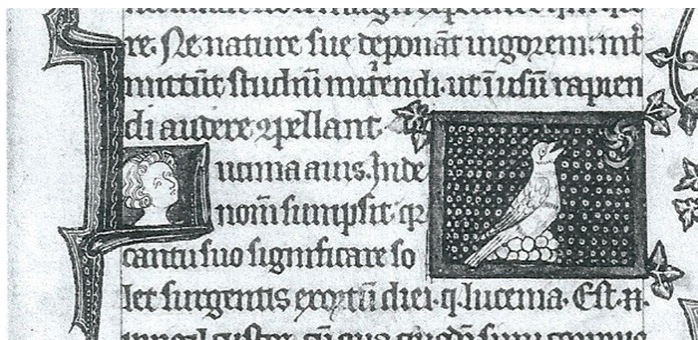 re. Ne nature sue deponāt uigorem. int̄
mittūt studiū nutrendi. ut ī usū rapien
di audere ꝯpellant.
Lucinia auis. Inde
nom̄ sumpsit. qꝛ
cantu suo significare so
let surgentis exortū diei. q. lucenia. Est .n.